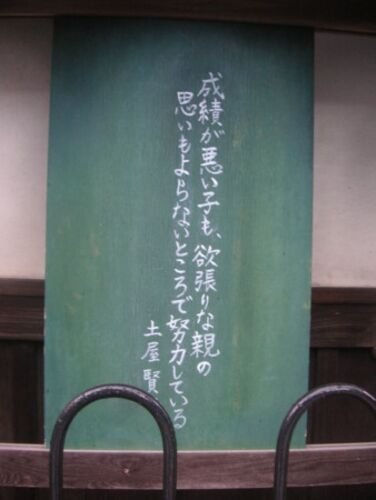 成績が悪い子も、欲張りな親の
思いもよらないところで努力している
土屋賢